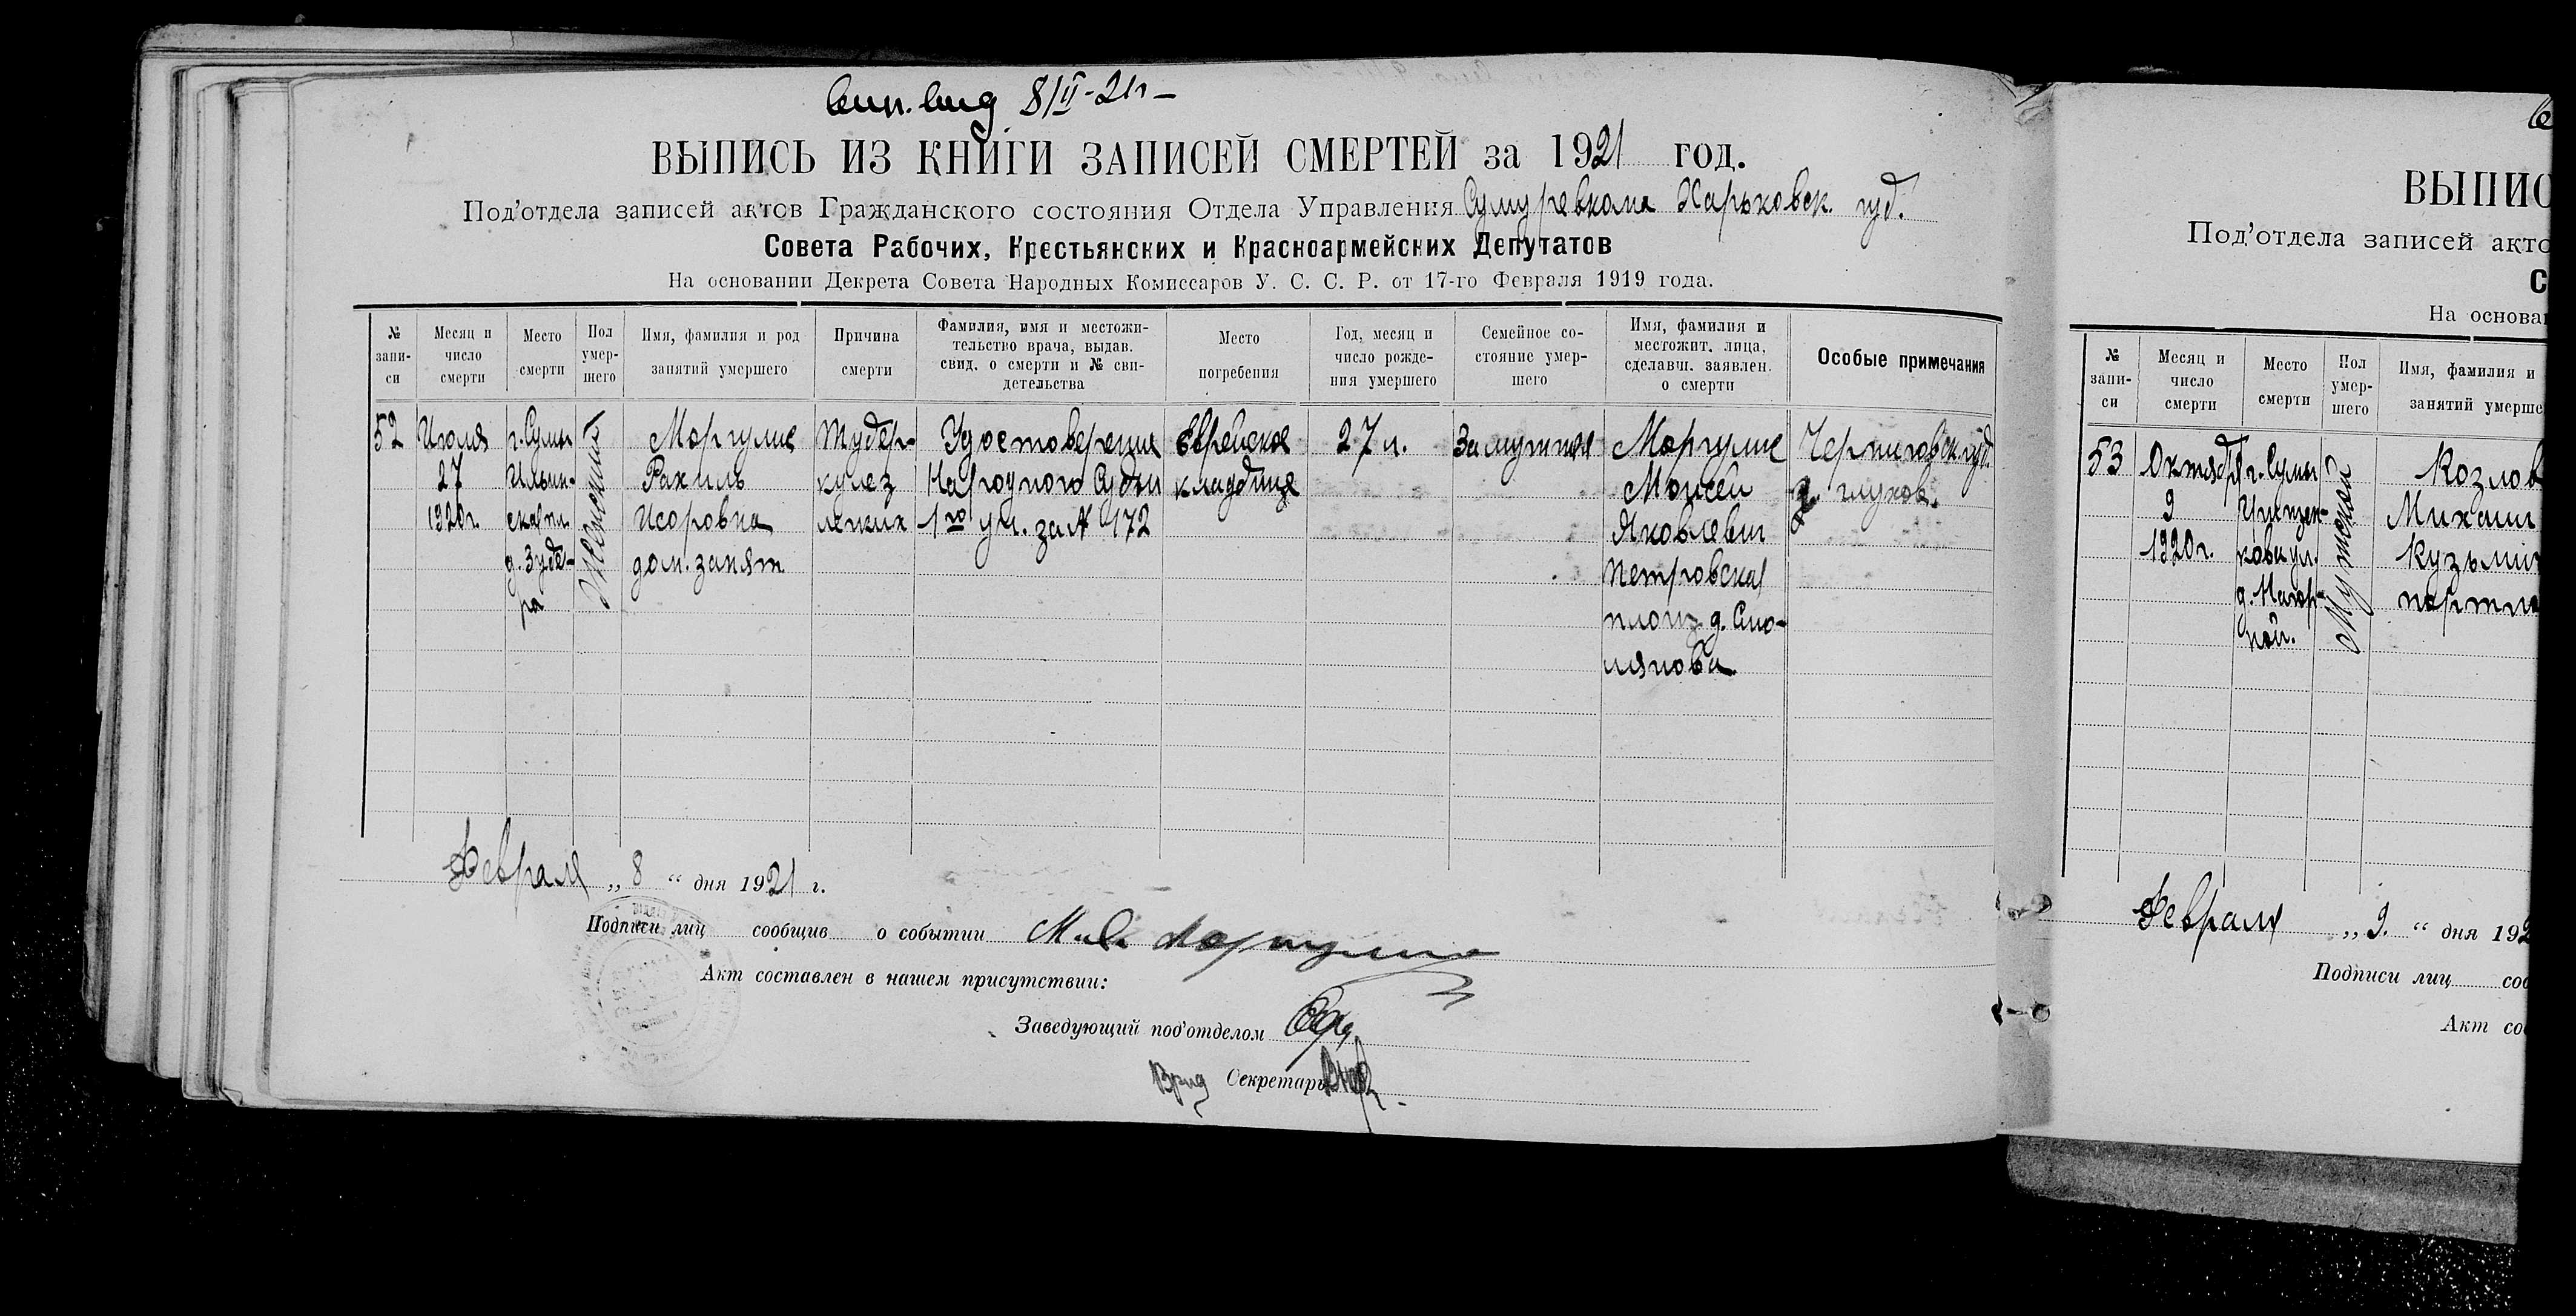 8/II-21г-
ВЫПИСЬ ИЗ КНИГИ ЗАПИСЕЙ СМЕРТЕЙ за 1921 год.
Под'отдела записей актов Гражданского состояния Отдела Управления Сумуревкома Харьковск. губ.
Совета Рабочих, Крестьянских и Красноармейских Депутатов
На основании Декрета Совета Народных Комиссаров У. С. С. Р. от 17-го Февраля 1919 года.
№ запи-си
Месяц и число смерти
Место смерти
Пол умер-шего
Имя, фамилия и род занятий умершего
Причина смерти
Фамилия, имя и местожи-тельство врача, выдав. свид. о смерти и № сви-детельства
Место погребения
Год, месяц и число рожде-ния умершего
Семейное со-стояние умер-шего
Имя, фамилия и местожит. лица, сделавш. заявлен. о смерти
Особые примечания
52
Июля
27
1920г.
г. Сумы
Ильин-
ская пл.
д. Зубе-
ра
Женский
Моргулис
Рахиль
Исоровна
дом. занят.
Тубер-
кулез
легких
Удостоверение
Народного Судьи
1го уч. за № 172
Еврейское
кладбище
27 л.
Замужняя
Моргулис
Моисей
Яковлевич
Петровская
площ. д. Смо-
лянова
Черниговск. губ.
г. Глухов.
Февраля „ 8 “ дня 1921 г.
Подписи лиц сообщив о событии М. Моргулис
Акт составлен в нашем присутствии:
Заведующий под'отделом
Врид Секретарь
ВЫПИС
Под'отдела записей акто
С
На основа
№ запи-си
Месяц и число смерти
Место смерти
Пол умер-шего
Имя, фамилия и
занятий умерше
53
Октября
9
1920г.
г. Сумы
д. Нагор-
ной.
Мужской
Козлов
Михаил
Кузьмич
портно
Февраля „ 9. “ дня 192
Подписи лиц соо
Акт со